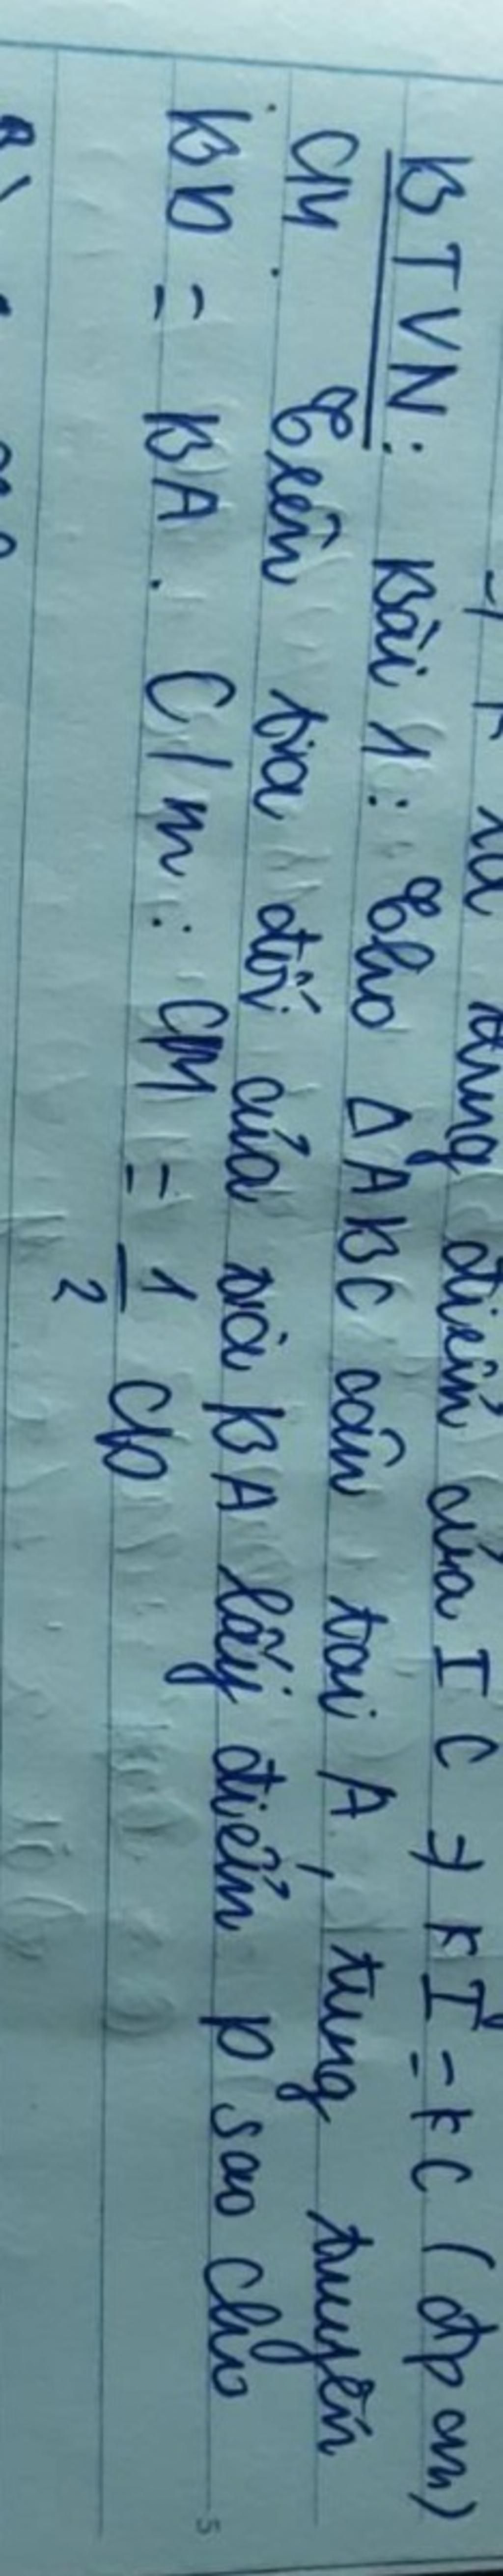 là trung điểm của IC → KI = KC (đpcm)
BTVN: Bài 1: Cho ΔABC cân tại A, trung tuyến
CM. Trên tia đối của tia BA lấy điểm D sao cho
BD = BA. C/m: CM = 1/2 CD